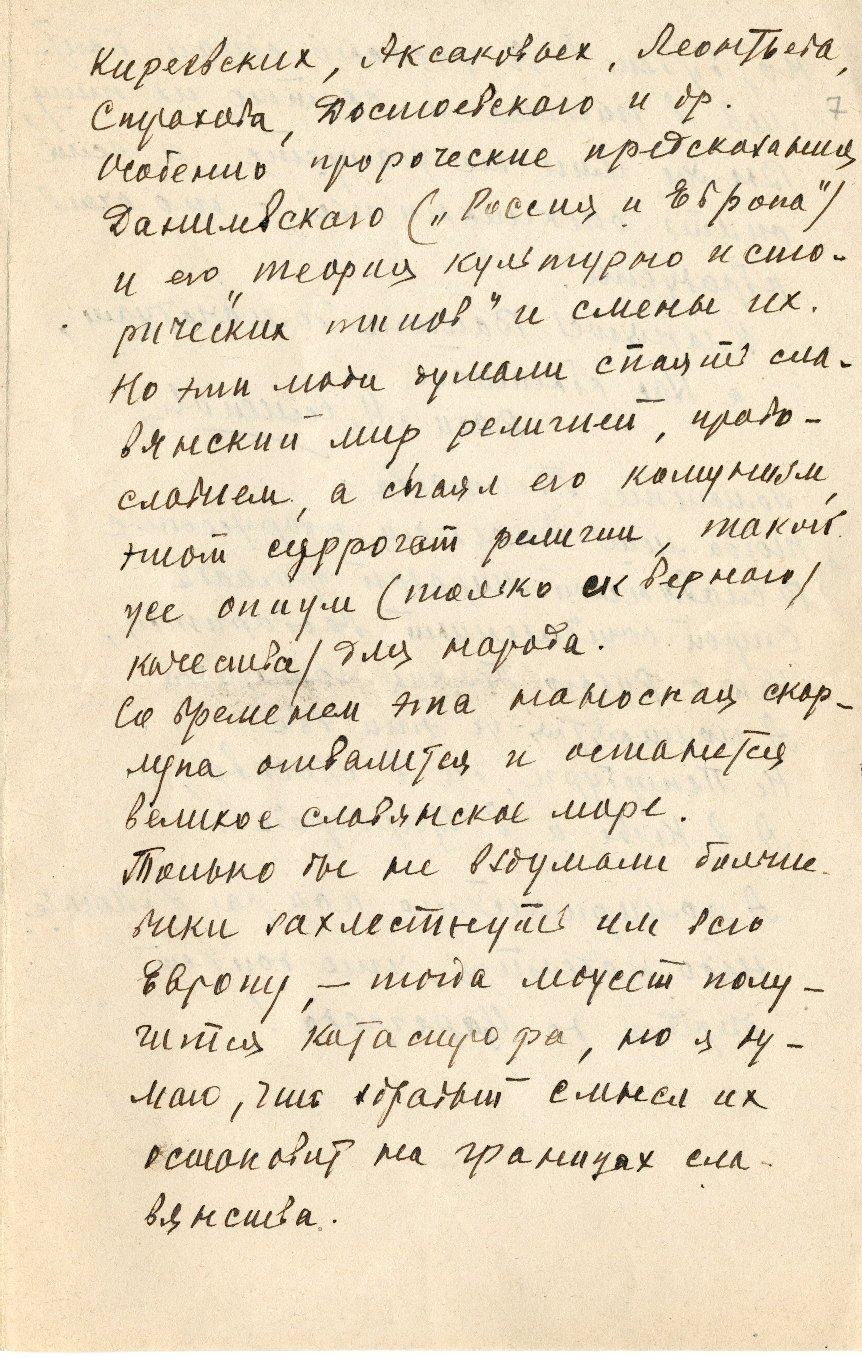 Киреевских, Аксаковых, Леонтьева,
Страхова, Достоевского и др.
7
Особенно пророческие предсказания
Данилевского („Россия и Европа"/
и его „теория культурно исто-
рических типов" и смены их.
Но эти люди думали спаять сла-
вянский мир религией, право-
славием, а спаял его комунизм,
этот суррогат религии, такой
же опиум (только скверного/
качества/ для народа.
Со временем эта наносная скор-
лупа отвалится и останется
великое славянское море.
Только бы не вздумали больше-
вики захлестнуть им всю
Европу, – тогда может полу-
чится катастрофа, но я ду-
маю, что здравый смысл их
остановит на границах сла-
вянства.